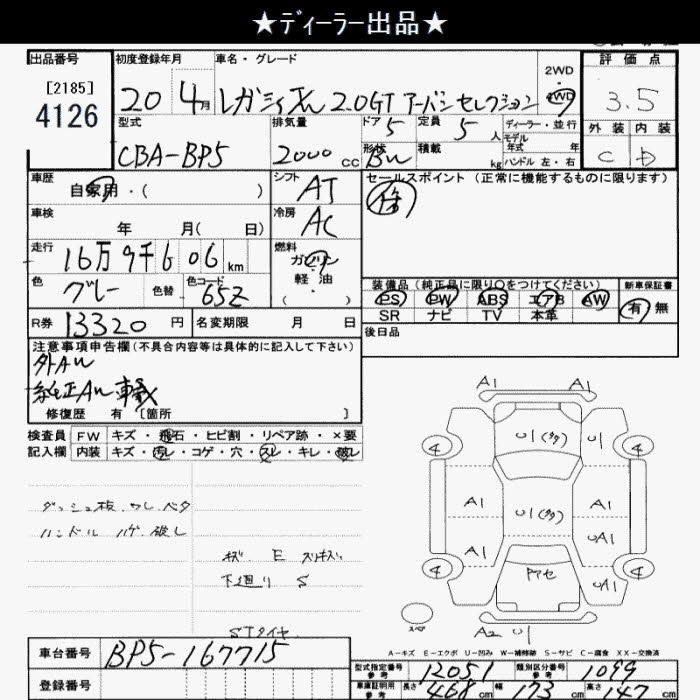 ★ﾃﾞｨｰﾗｰ出品★
出品番号
[2185]
4126
初度登録年月
20 4月
車名・グレード
レガシィ 2.0GT アーバンセレクション
2WD
4WD
評価点
3.5
外装 内装
C D
型式
CBA-BP5
排気量
2000 CC
ドア
5
定員
5 人
形状
積載
kg
ディーラー・並行
モデル
年式 年
ハンドル 左・右
車歴
自家用・( )
シフト
AT
セールスポイント (正常に機能するものに限ります)
車検
年 月( 日)
冷房
AC
走行
16万9千606 km
燃料
ガソリン
・
軽油
・
( )
色
グレー
色替
色コード
65Z
装備品(純正品に限り○をつけてください)
PS PW ABS エアB AW
SR ナビ TV 本革
新車保証書
有 無
R券
13320 円
名変期限 月 日
後日品
注意事項申告欄(不具合内容等は具体的に記入して下さい)
外AW
純正AW車載
修復歴 有 〔箇所 〕
検査員
記入欄
FW キズ・飛石・ヒビ割・リペア跡・×要
内装 キズ・汚レ・コゲ・穴・スレ・キレ・破レ
ダッシュ板 ワレ ベタ
ハンドル ハゲ 破レ
キズ E スリキズ
下廻り S
STタイヤ
A1 A1
4 U1(タタ) U1 4
A1 A1
U1(タタ)
A1 UA1
4 アセ UA1 4
スペア
A2 U1
A-キズ E-エクボ U-凹み W-補修跡 S-サビ C-腐食 XX-交換済
車台番号
BP5-167715
登録番号
型式指定番号
参考
12051
類別区分番号
参考
1099
車庫証明用
参考
長さ 468 cm 幅 173 cm 高さ 147 cm